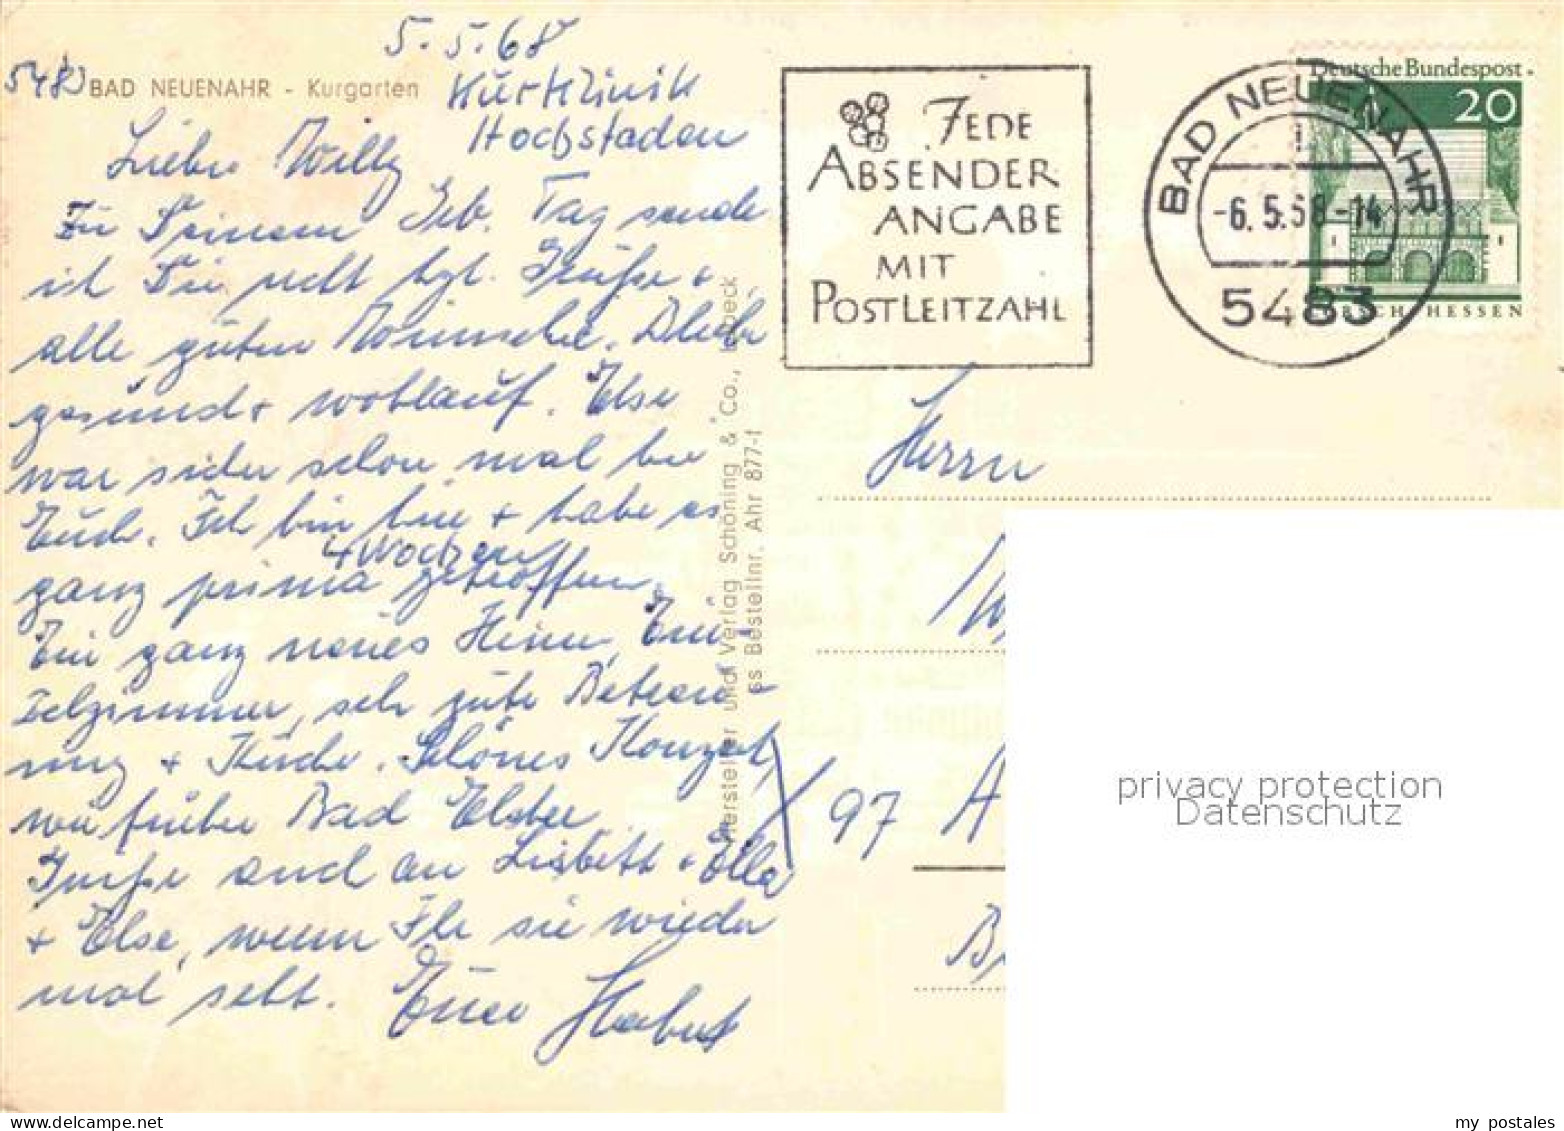 5.5.68
5483 BAD NEUENAHR - Kurgarten
Kurklinik
Hochstaden
Lieber Willy
Zu Deinem Geb. Tag sende
ich Dir nebst hzl. Grüße +
alle guten Wünsche. Bleibe
gesund + wohlauf. Else
war sicher schon mal bei
Euch. Ich bin hier + habe es
4 Wochen
ganz prima getroffen.
Ein ganz neues Heim, Ein-
zelzimmer, sehr gute Betreu-
ung + Küche. Schönes Konzert,
wie früher Bad Elster
Grüße auch an Lisbett + Ella
+ Else, wenn Ihr sie wieder
mal seht. Euer
Hersteller und Verlag Schöning & Co., Lübeck
ss Bestellnr. Ahr 877-f
JEDE
ABSENDER
ANGABE
MIT
POSTLEITZAHL
BAD NEUENAHR
-6.5.68-14
5483
Deutsche Bundespost
20
LORSCH/HESSEN
Herrn
97 A
privacy protection
Datenschutz
my postales